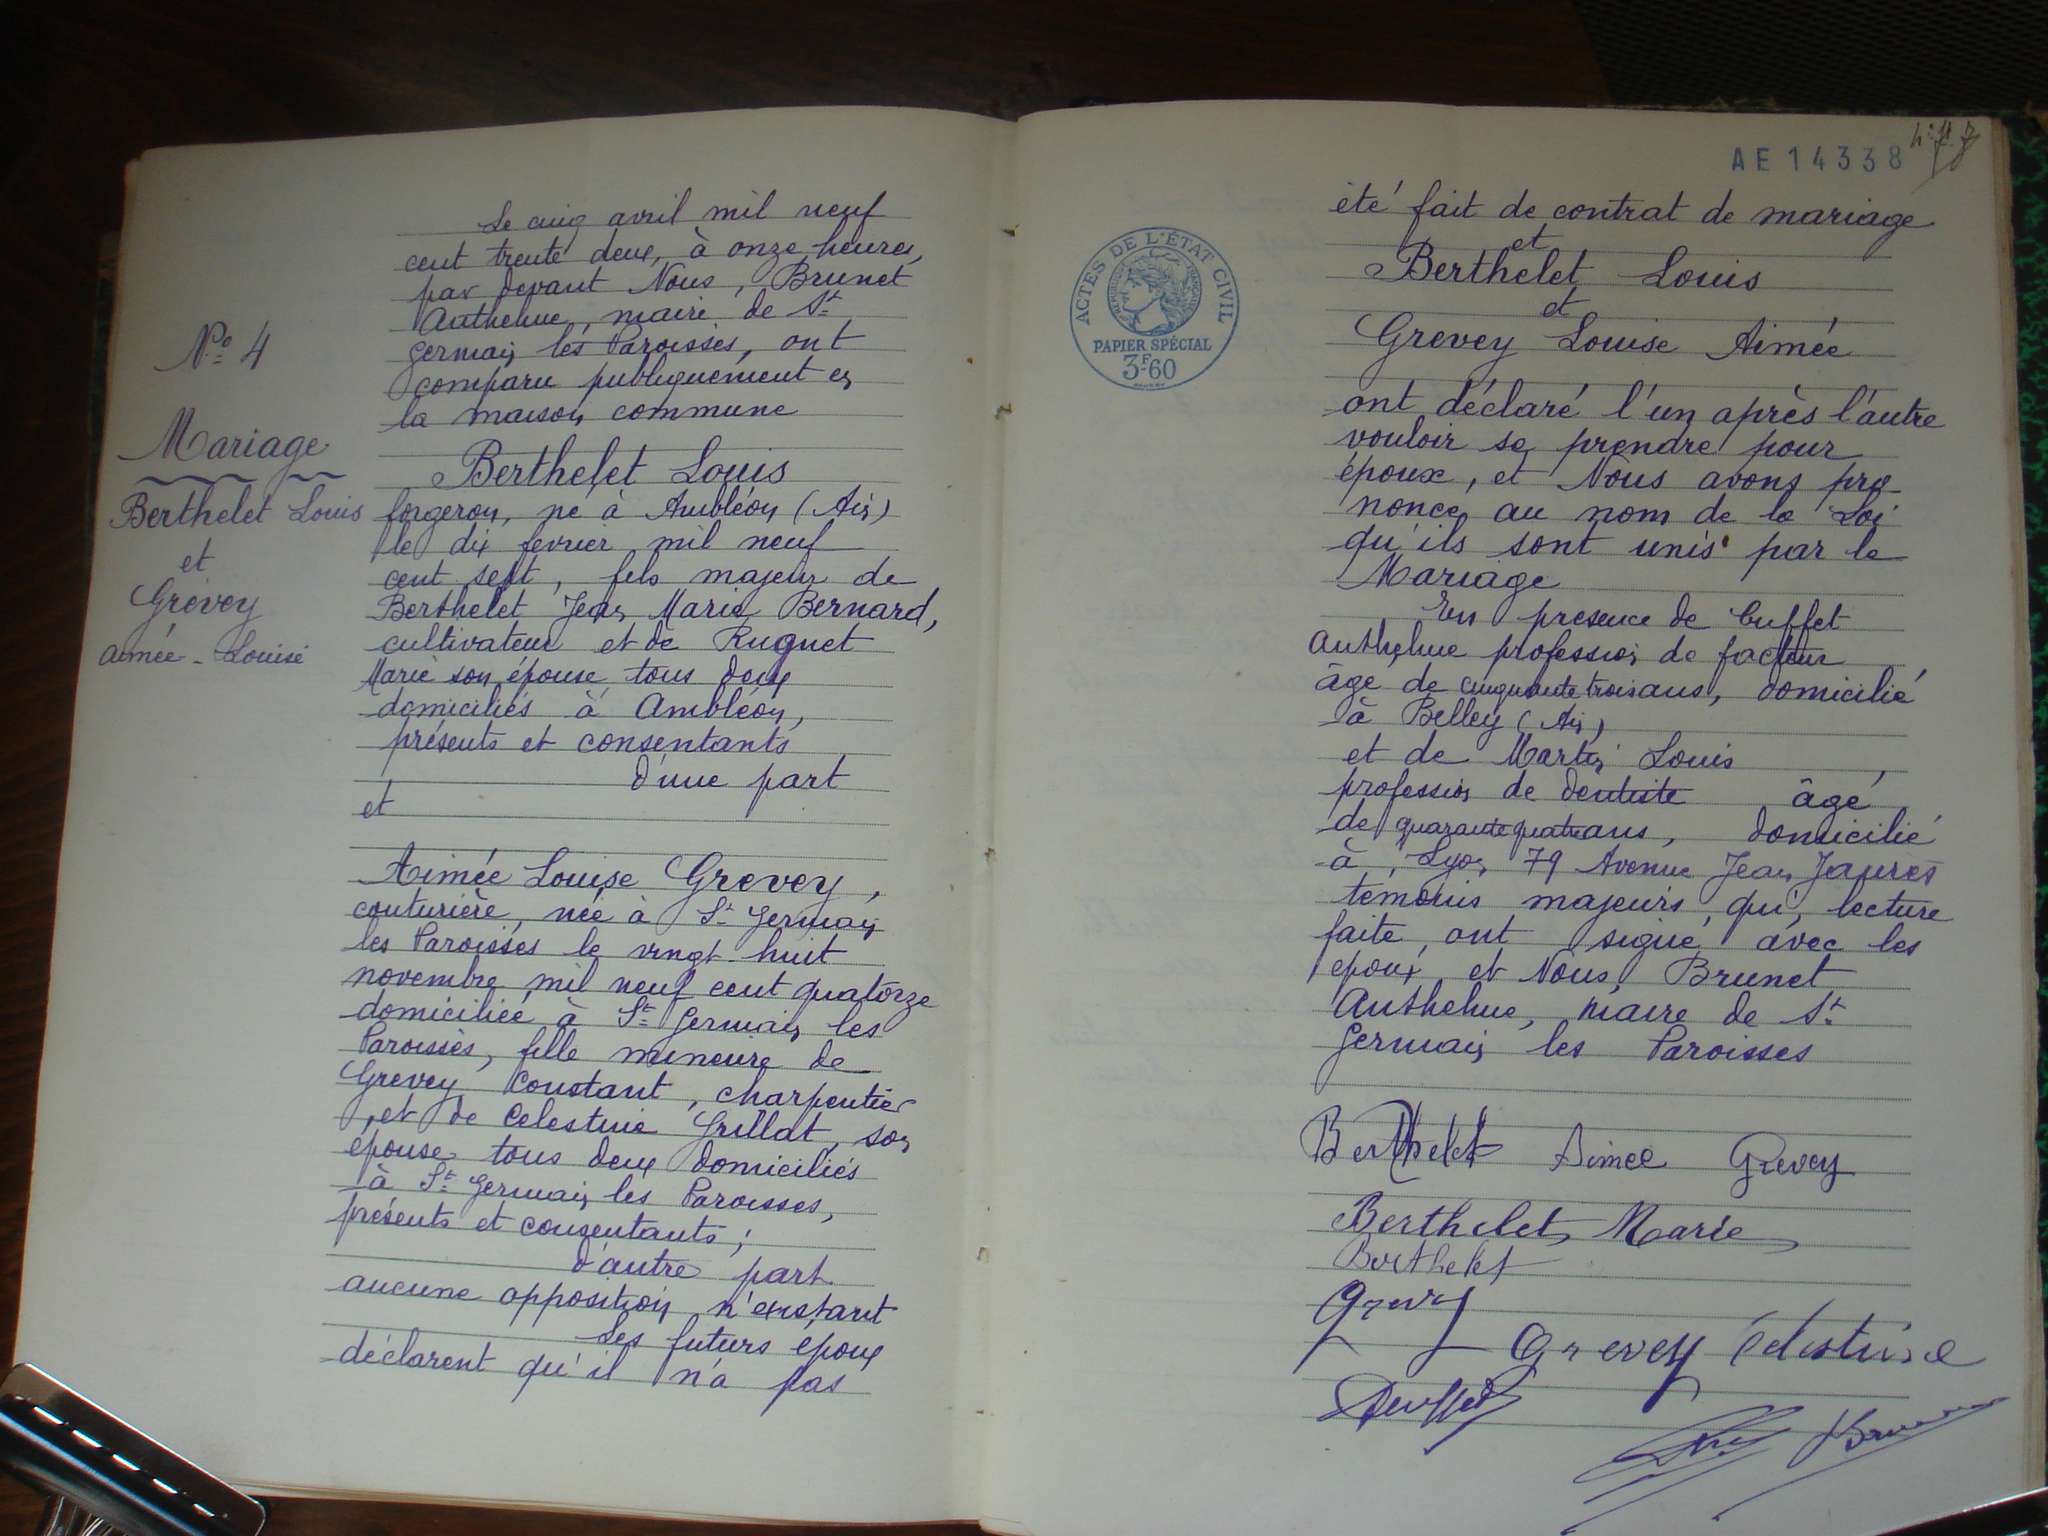 Nº 4
Mariage
Berthelet Louis
et
Grévey
Aimée - Louise
Le cinq avril mil neuf
cent trente deux, à onze heures,
par devant Nous, Brunet
Anthelme, maire de St
Germain les Paroisses, ont
comparu publiquement en
la maison commune
Berthelet Louis
forgeron, né à Ambléon (Ain)
le dix fevrier mil neuf
cent sept, fils majeur de
Berthelet Jean Marie Bernard,
cultivateur et de Rugnet
Marie son épouse tous deux
domiciliés à Ambléon,
présents et consentants
d'une part
et
Aimée Louise Grevey,
couturière, née à St Germain
les Paroisses le vingt huit
novembre mil neuf cent quatorze
domiciliée à St Germain les
Paroisses, fille mineure de
Grevey Constant, charpentier
et de Celestine Grillat, son
épouse tous deux domiciliés
à St Germain les Paroisses,
présents et consentants;
d'autre part
aucune opposition n'existant
Les futurs époux
déclarent qu'il n'a pas
AE 14338
ACTES DE L'ÉTAT CIVIL
RÉPUBLIQUE FRANÇAISE
PAPIER SPÉCIAL
3F60
été fait de contrat de mariage
et
Berthelet Louis
et
Grevey Louise Aimée
ont déclaré l'un après l'autre
vouloir se prendre pour
époux, et Nous avons pro
noncé au nom de la Loi
qu'ils sont unis par le
Mariage
En presence de Cuffet
Anthelme profession de facteur
âge de cinquante trois ans, domicilié
à Belley (Ain)
et de Martin Louis
profession de dentiste âgé
de quarante quatre ans, domicilié
à Lyon 79 Avenue Jean Jaures
temoins majeurs, qui, lecture
faite, ont signé avec les
epoux et Nous, Brunet
Anthelme, maire de St
Germain les Paroisses
Berthelet Aimée Grevey
Berthelet Marie
Berthelet
Grevey
Grevey Célestine